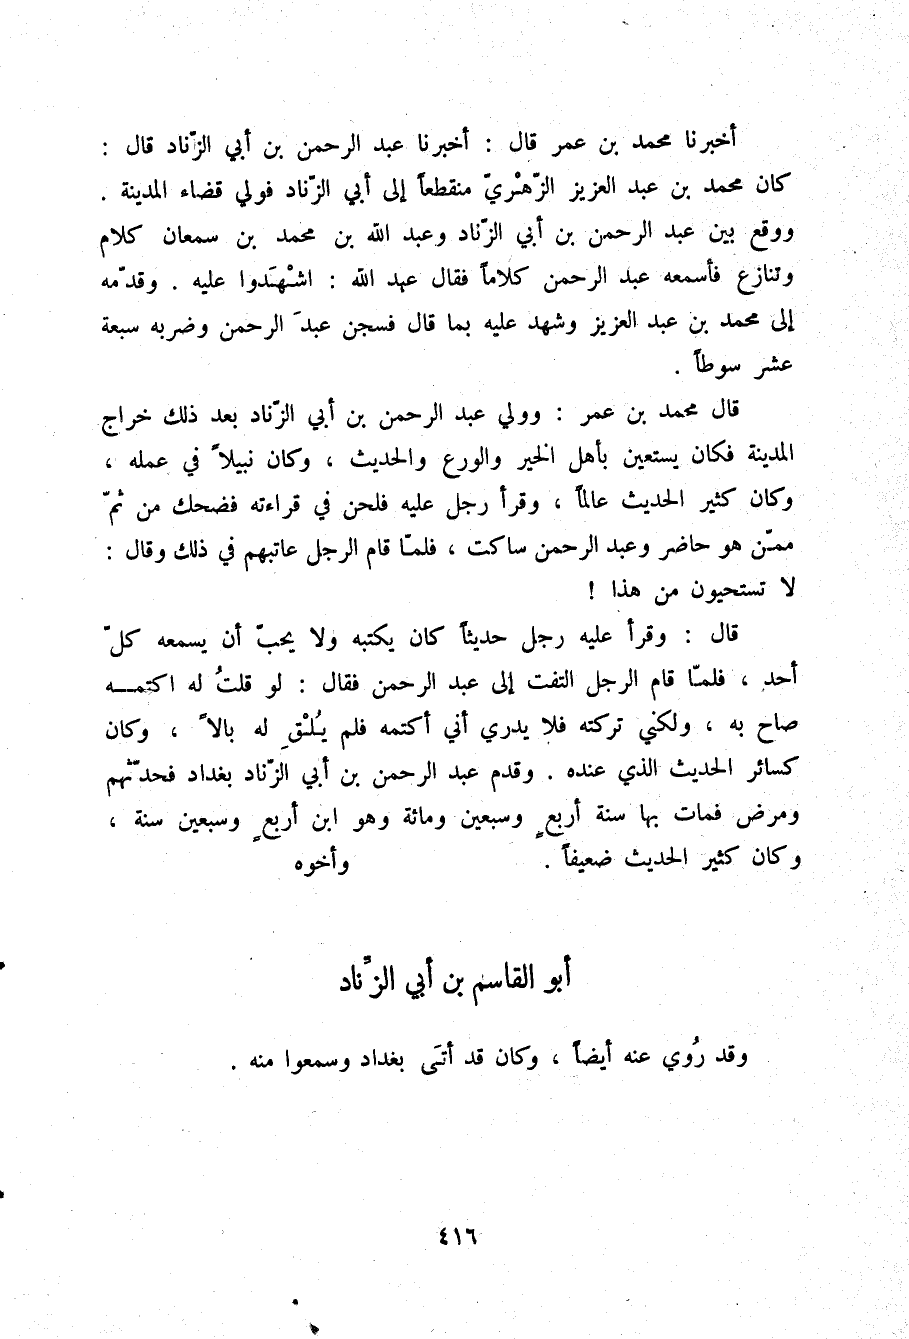 أخبرنا محمد بن عمر قال : أخبرنا عبد الرحمن بن أبي الزّناد قال :
كان محمد بن عبد العزيز الزّهْريّ منقطعاً إلى أبي الزّناد فولي قضاء المدينة .
ووقع بين عبد الرحمن بن أبي الزّناد وعبد الله بن محمد بن سمعان كلام
وتنازع فأسمعه عبد الرحمن كلاماً فقال عبد الله : اشْهَدوا عليه . وقدّمه
إلى محمد بن عبد العزيز وشهد عليه بما قال فسجن عبدَ الرحمن وضربه سبعة
عشر سوطاً .
قال محمد بن عمر : وولي عبد الرحمن بن أبي الزّناد بعد ذلك خراج
المدينة فكان يستعين بأهل الخير والورع والحديث ، وكان نبيلاً في عمله ،
وكان كثير الحديث عالماً ، وقرأ رجل عليه فلحن في قراءته فضحك من ثمّ
ممّن هو حاضر وعبد الرحمن ساكت ، فلمّا قام الرجل عاتبهم في ذلك وقال :
لا تستحيون من هذا !
قال : وقرأ عليه رجل حديثاً كان يكتبه ولا يحبّ أن يسمعه كلّ
أحد ، فلمّا قام الرجل التفت إلى عبد الرحمن فقال : لو قلتُ له اكتمه
صاح به ، ولكني تركته فلا يدري أني أكتمه فلم يُلْقِ له بالاً ، وكان
كسائر الحديث الذي عنده . وقدم عبد الرحمن بن أبي الزّناد بغداد فحدّثهم
ومرض فمات بها سنة أربعٍ وسبعين ومائة وهو ابن أربعٍ وسبعين سنة ،
وكان كثير الحديث ضعيفاً . وأخوه
أبو القاسم بن أبي الزّناد
وقد رُوي عنه أيضاً ، وكان قد أتَى بغداد وسمعوا منه .
٤١٦